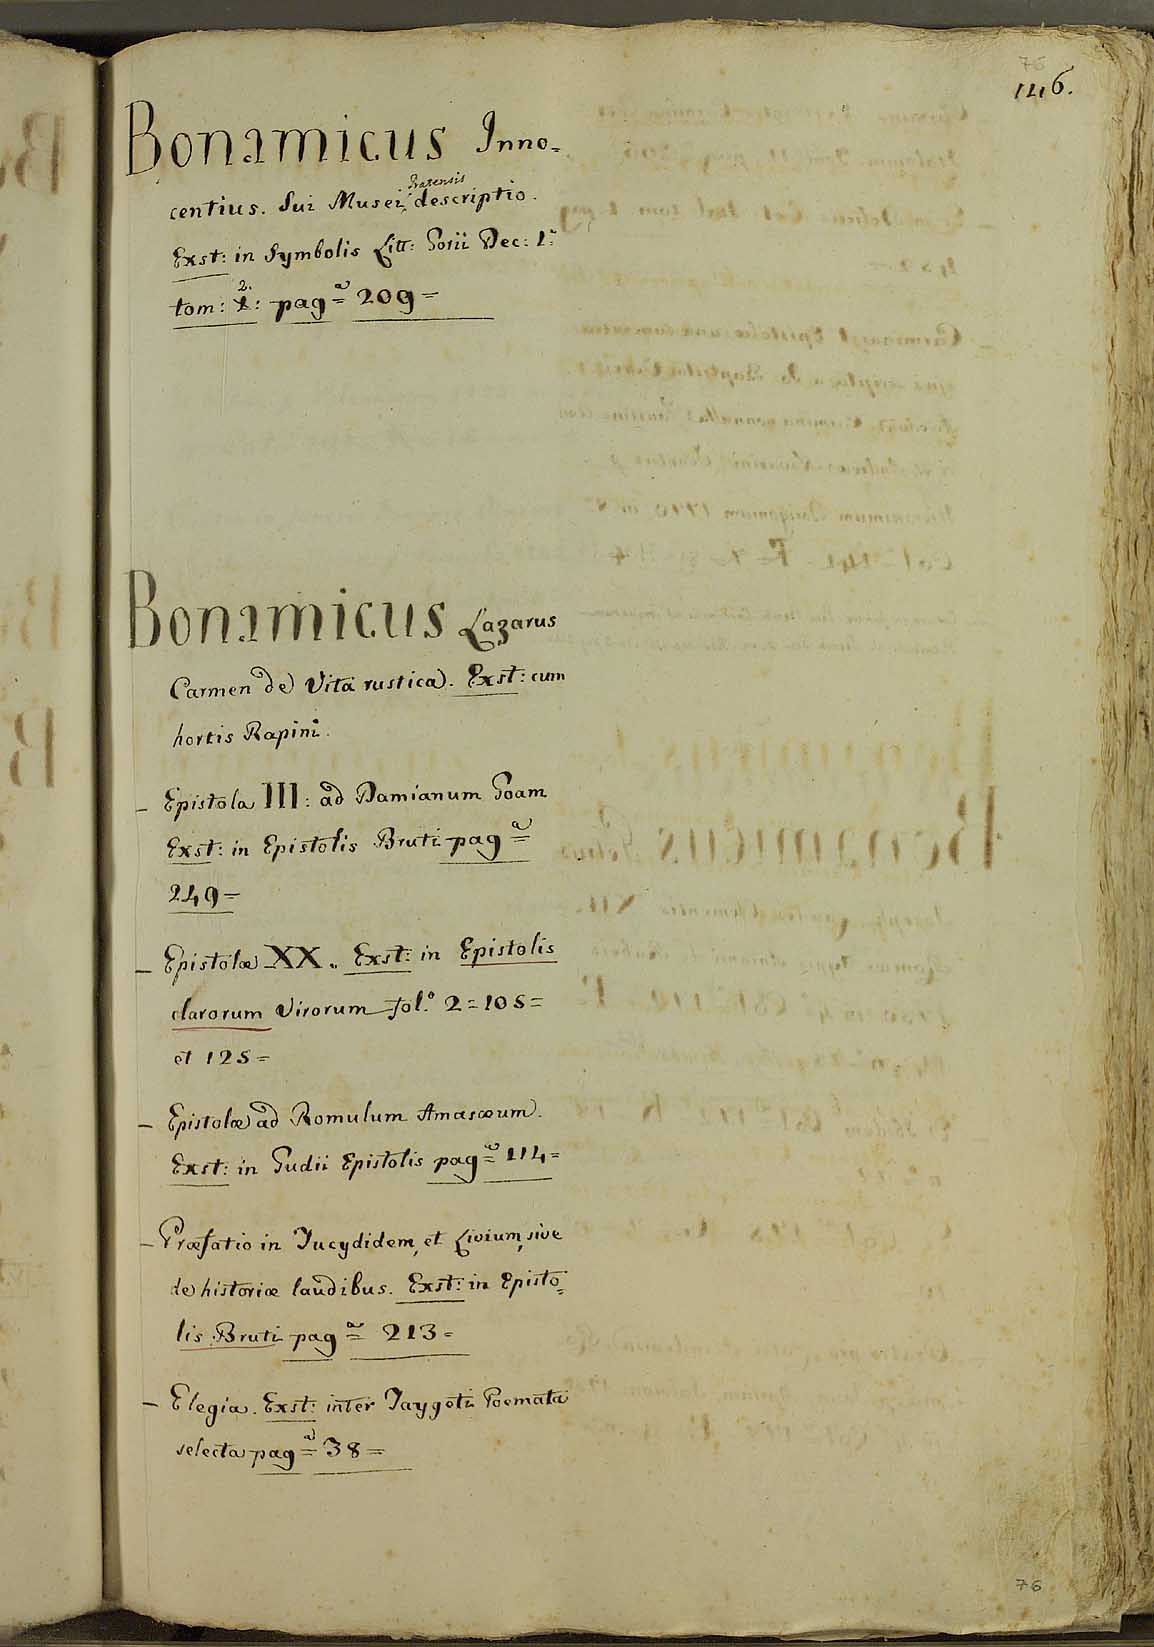 76
146.
Bonamicus Inno=
centius. Sui Musei Pratensis descriptio.
Exst: in Symbolis Litt: Gorii Dec: I.ª
tom: 2: pagª= 209=
Bonamicus Lazarus
Carmen de Vita rustica. Exst: cum
hortis Rapini.
– Epistola III: ad Damianum Goam
Exst: in Epistolis Bruti pagª=
249=
– Epistolæ XX. Exst: in Epistolis
clarorum Virorum fol.º 2=105=
et 125=
– Epistolæ ad Romulum Amasæum.
Exst: in Gudii Epistolis pagª= 114=
– Præfatio in Tucydidem, et Livium, sive
de historiæ laudibus. Exst: in Episto=
lis Bruti pagª= 213=
– Elegia. Exst: inter Taygeti Poemata
selecta pagª= 38=
76